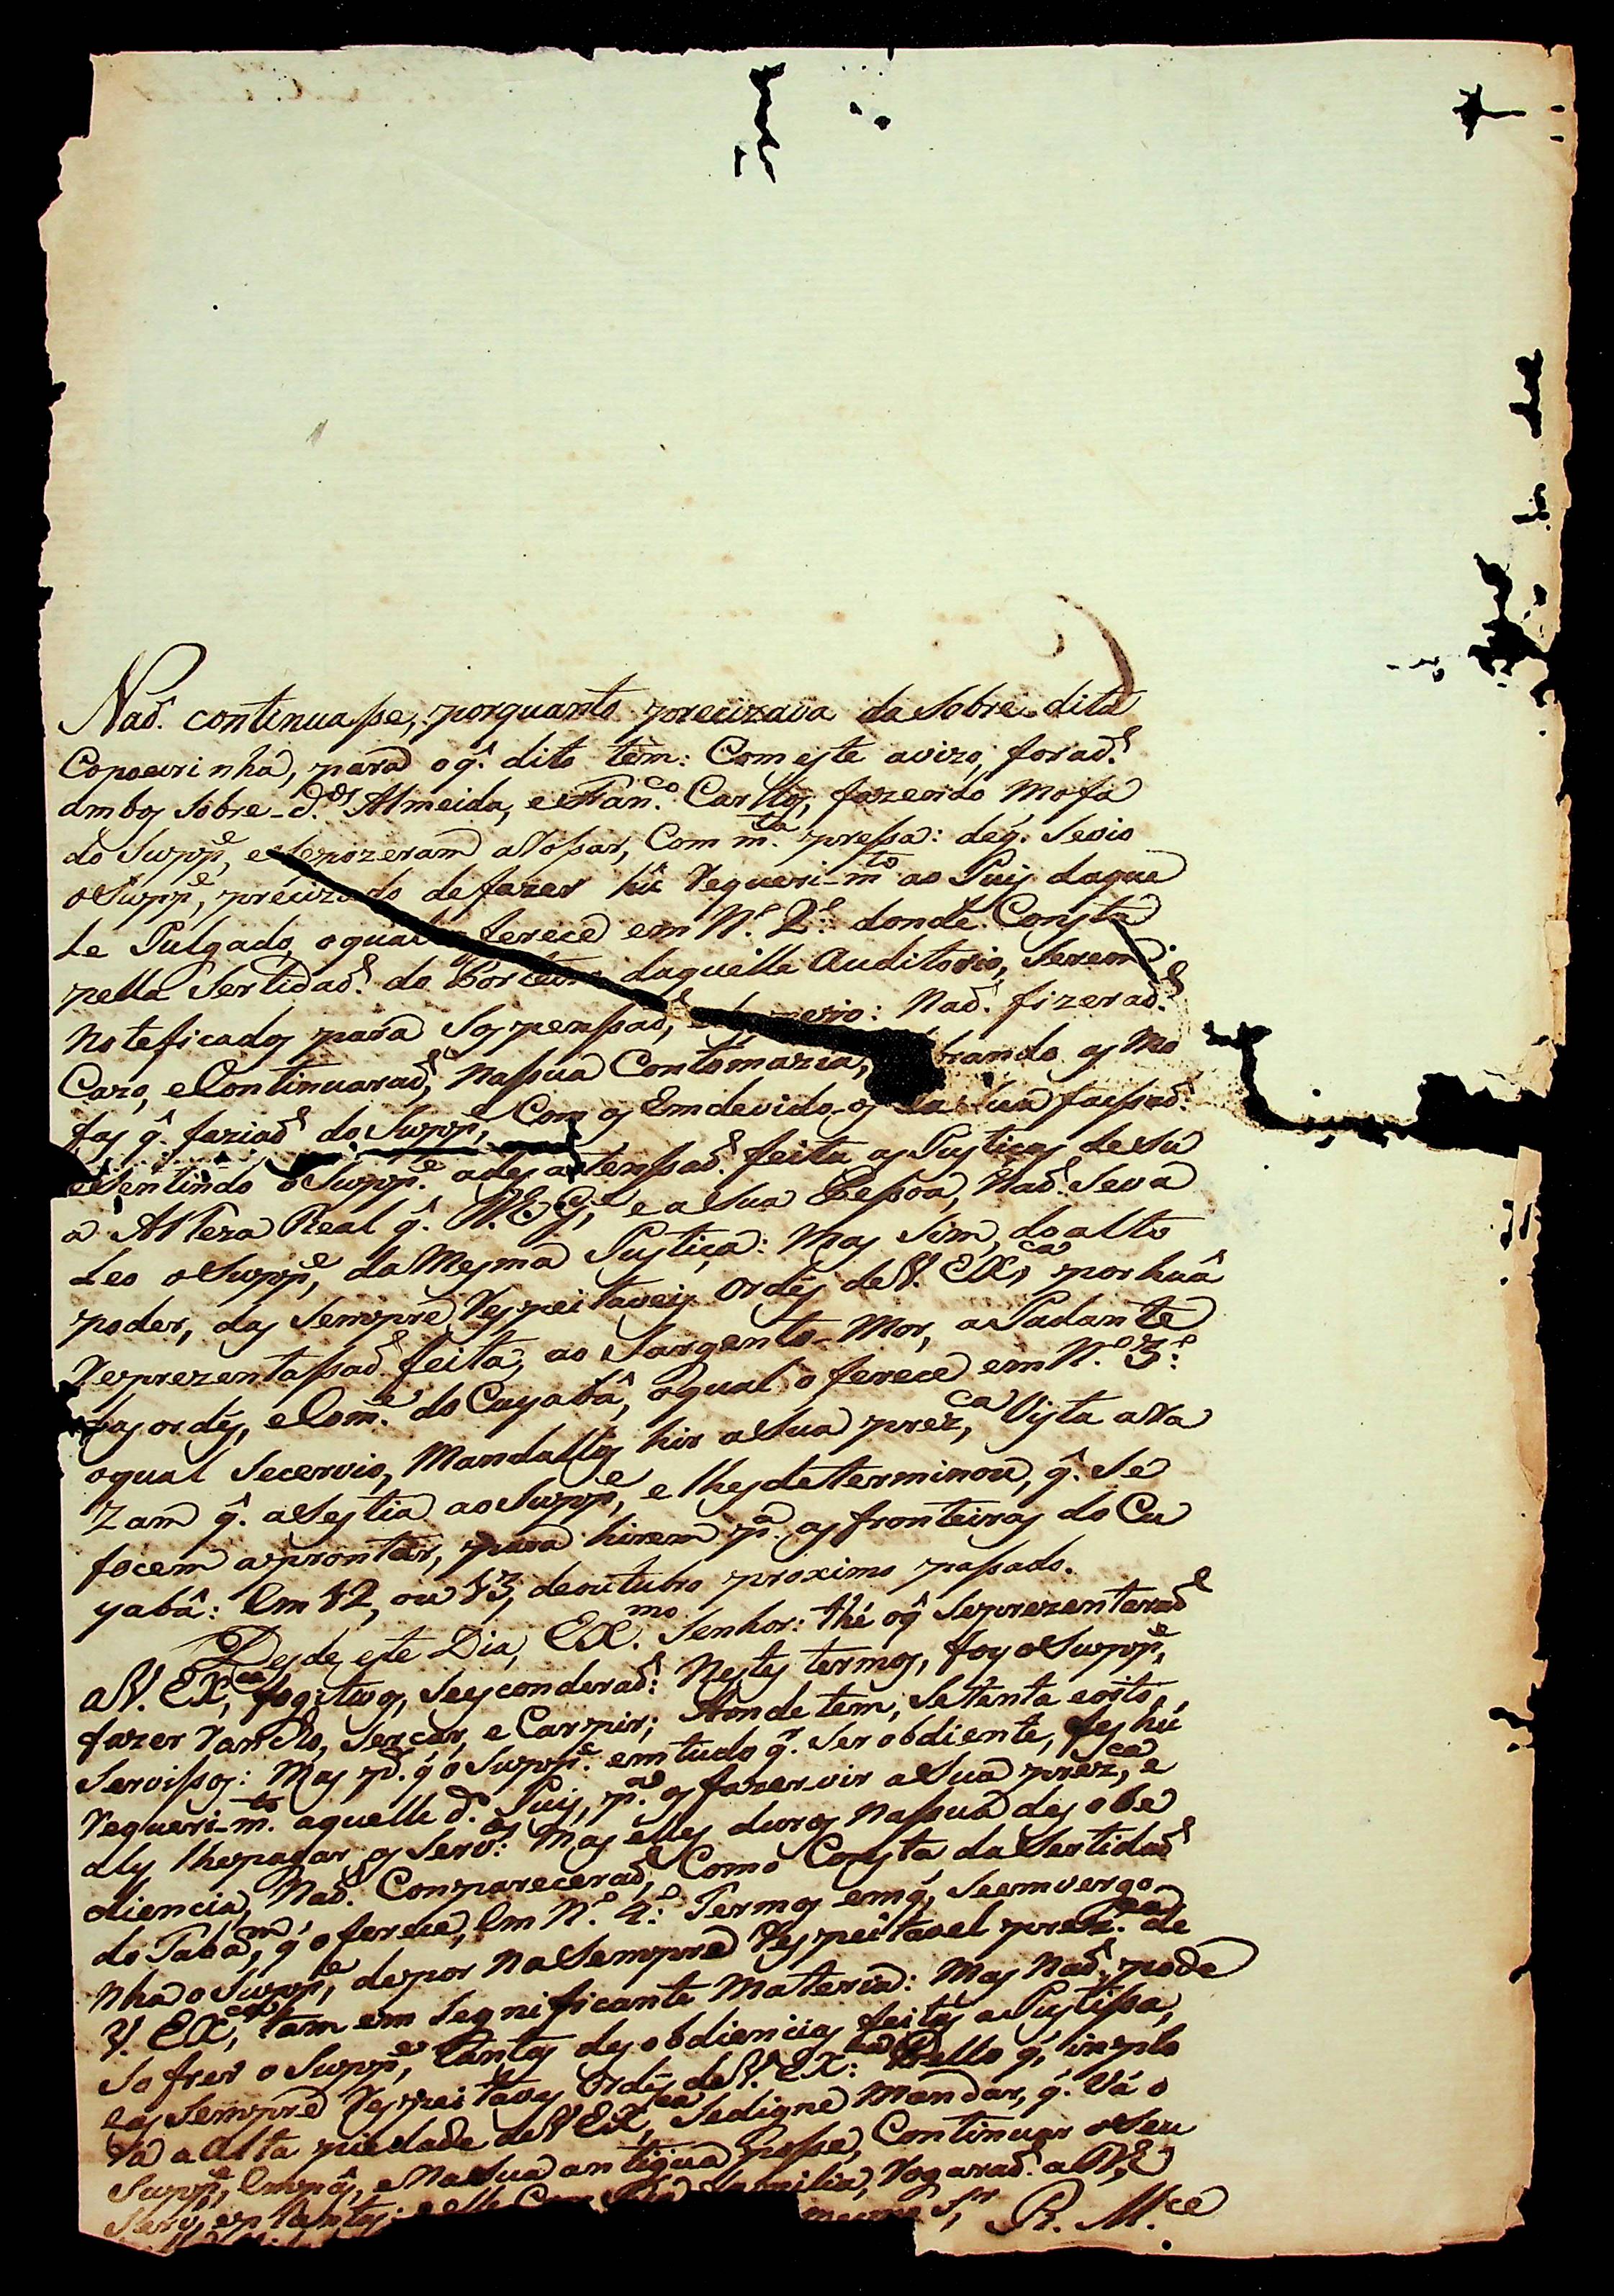 Naõ. continuaſse, porquanto precizava da Sobre-dita
Copoeirinha, para o q̂. dito tem: Com este avizo, foraõ.
ambos Sobre-d.os Almeida, e Fran.co Carllos, fazendo Mofa
do Supp.e, e Sepozeram a Roſsar, Com m.ta preſsa: de q̂. Sevio
o Supp.e, precizado de fazer hũ Requeri-m.to ao Juis daque
le Julgado, o qual oferece em N.º 2.º donde Consta
pella Sertidaõ. do Porteiro daquelle Auditorio, Serem
Noteficados para Sospenſsaõ, Naõ. fizeraõ.
Cazo, e Continuaraõ, Naſsua Contomazia, brando os Mo
fas q̂. faziaõ do Supp.e, Com os Emdevidos da Sua facſsaõ.
e Sentindo o Supp.e a desatenſsaõ. feita as Justiças de Su
a AlTeza Real q̂. D.E.G.e, e a Sua Peſsoa, Naõ. Seva
Leo o Supp.e, da Mesma Justiça: Mas Sim, do alto
poder, das Sempre Respeitaveis Ordẽs de V. EX.ca, por huã
Reprezentaſsaõ feita, ao Sargento-Mor, a Judante
das ordẽs, e Com.e do Cuyabâ, o qual oferece em N.º 3.º
o qual Secervio, Mandallos hir a Sua prez.ca, Vista a Ra
Zam q̂. a Sestia ao Supp.e, e lhes determinou, q̂. Se
focem aprontar, para hirem p.a as fronteiras do Cu
yabâ: Em 12, ou 13, de outubro proximo paſsado.
Desde este Dia, EX.mo Senhor: thé o q̂ Seprezentaraõ
a V. EX.ca, fogitivos, Seesconderaõ: Nestes termos, foy o Supp.e,
fazer Rancho, Sercar, e Carpir; Aonde tem, Setenta e oito,
Serviſsos: Mas p.r q̂ o Supp.e em tudo q̂. Ser obdiente, fes hũ
Requeri-m.to aquelle d.o Juis, p.a os fazer vir a Sua prez.ca, e
aly lhe pagar os Serv.os: Mas elles duros Naſsua des obe
diencia, Naõ. Compareceraõ, Como Consta da Sertidaõ
do Taba.m, q̂ oferece, Em N.º 4.º Termos em q̂, Seemvergo
nha o Supp.e, depor Na Sempre Respeitavel prez.ca de
V. EX.ca, tam em Segnificante Materia: Mas Naõ. pode
Sofrer o Supp.e, tantas desobdiencias feitas a Justiſsa,
e as Sempre Respeitaves Ordẽs de V. EX.ca: Pello q̂, inplo
Ra a alta piedade de V EX.ca, Sedigne Mandar, q̂. Vá o
Supp.e, Empâs, e Na Sua antigua poſse, Continuar o Seu
Serv.o, e plantas; e elle Com Sua familia, Rogaraõ. a D.s
mesmo S.r R. M.ce